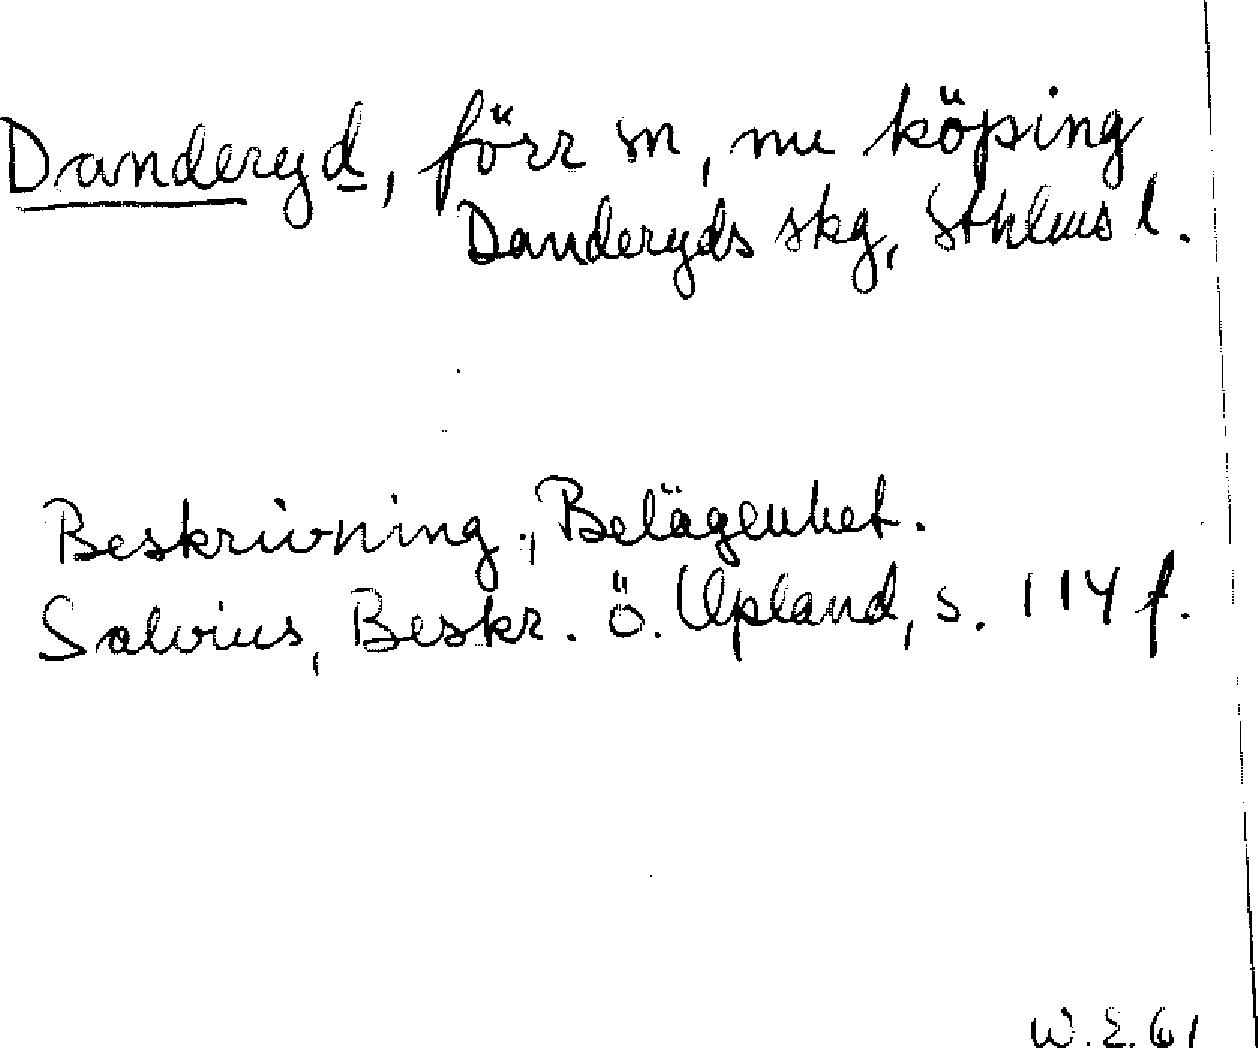 Danderyd, förr sn, nu köping
Danderyds skg, Sthlms l.
Beskrivning., Belägenhet.
Salvius, Beskr. ö. Upland, s. 114 f.
W.E. 61